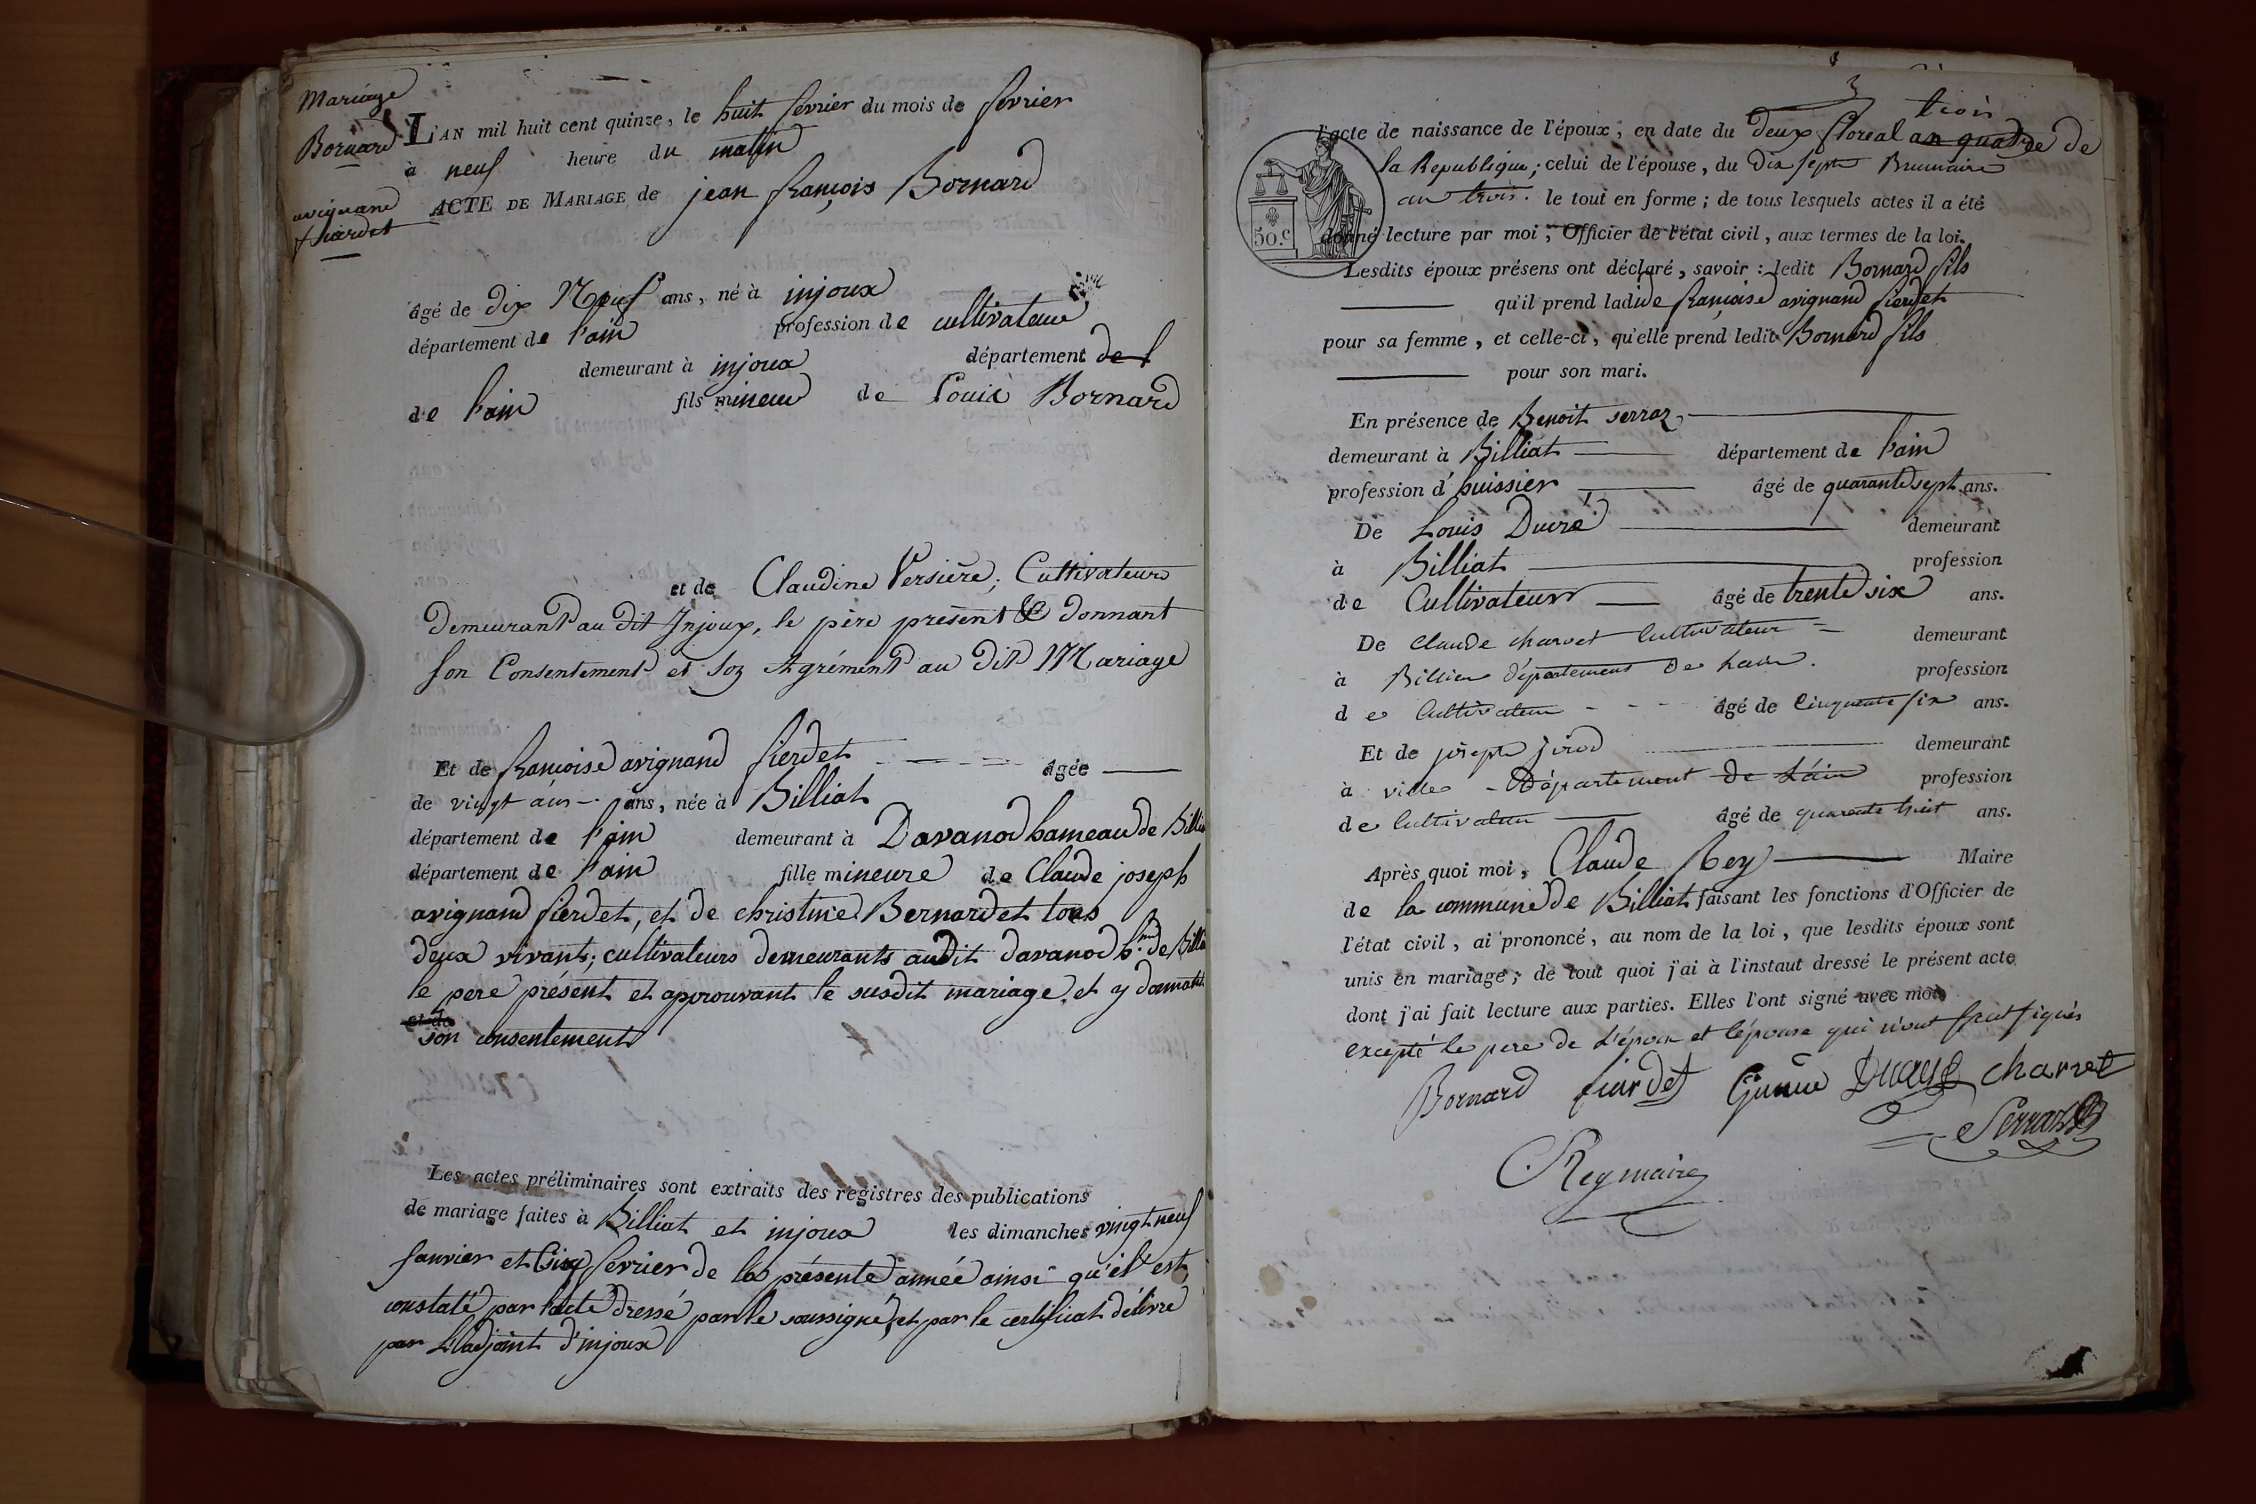 Mariage
Bornard
avignand
fierdet
L'AN mil huit cent quinze, le huit fevrier du mois de fevrier
à neuf heure du matin
ACTE DE MARIAGE de jean françois Bornard
âgé de dix Neuf ans, né à injoux
département de l'ain profession de cultivateur
demeurant à injoux département de l
de l'ain fils mineur de Louis Bornard
et de Claudine Versière, Cultivateurs
demeurant au dit Injoux, le père présent & donnant
son Consentement et son Agrément au dit Mariage
Et de françoise avignand fierdet âgée
de vingt ans ans, née à Billiat
département de l'ain demeurant à Davanod hameau de Billiat
département de l'ain fille mineure de Claude joseph
avignand fierdet, et de christine Bernardet tous
deux vivants, cultivateurs demeurants audit davanod h.au de Billiat
le pere présent et approuvant le susdit mariage, et y donnant
et de
son consentement
Les actes préliminaires sont extraits des registres des publications
de mariage faites à Billiat et injoux les dimanches vingt neuf
janvier et Cinq fevrier de la présente année ainsi qu'il est
constaté par l'acte dressé par le soussigné, et par le certificat délivré
par L'adjoint d'injoux
3 trois
l'acte de naissance de l'époux, en date du deux floreal an quatre de
la Republique; celui de l'épouse, du dix sept Brumaire
an trois. le tout en forme; de tous lesquels actes il a été
donné lecture par moi, Officier de l'état civil, aux termes de la loi.
50.c
Lesdits époux présens ont déclaré, savoir: ledit Bornard fils
qu'il prend ladide françoise avignand fierdet
pour sa femme, et celle-ci, qu'elle prend ledit Bornard fils
pour son mari.
En présence de Benoit serraz
demeurant à Billiat département de l'ain
profession d'huissier âgé de quarante sept ans.
De Louis Ducré demeurant
à Billiat profession
de Cultivateur âgé de trente six ans.
De Claude charvet Cultivateur demeurant
à département de Lain. profession
de Cultivateur âgé de Cinquante six ans.
Et de joseph jirod demeurant
à ville Département de L'ain profession
de Cultivateur âgé de quarente huit ans.
Après quoi moi, Claude Rey Maire
de la commune de Billiat faisant les fonctions d'Officier de
l'état civil, ai prononcé, au nom de la loi, que lesdits époux sont
unis en mariage; de tout quoi j'ai à l'instaut dressé le présent acte
dont j'ai fait lecture aux parties. Elles l'ont signé avec moi
excepté le pere de L'époux et l'épouse qui n'ont signés
Bornard fierdet charvet
Serraz
Rey maire